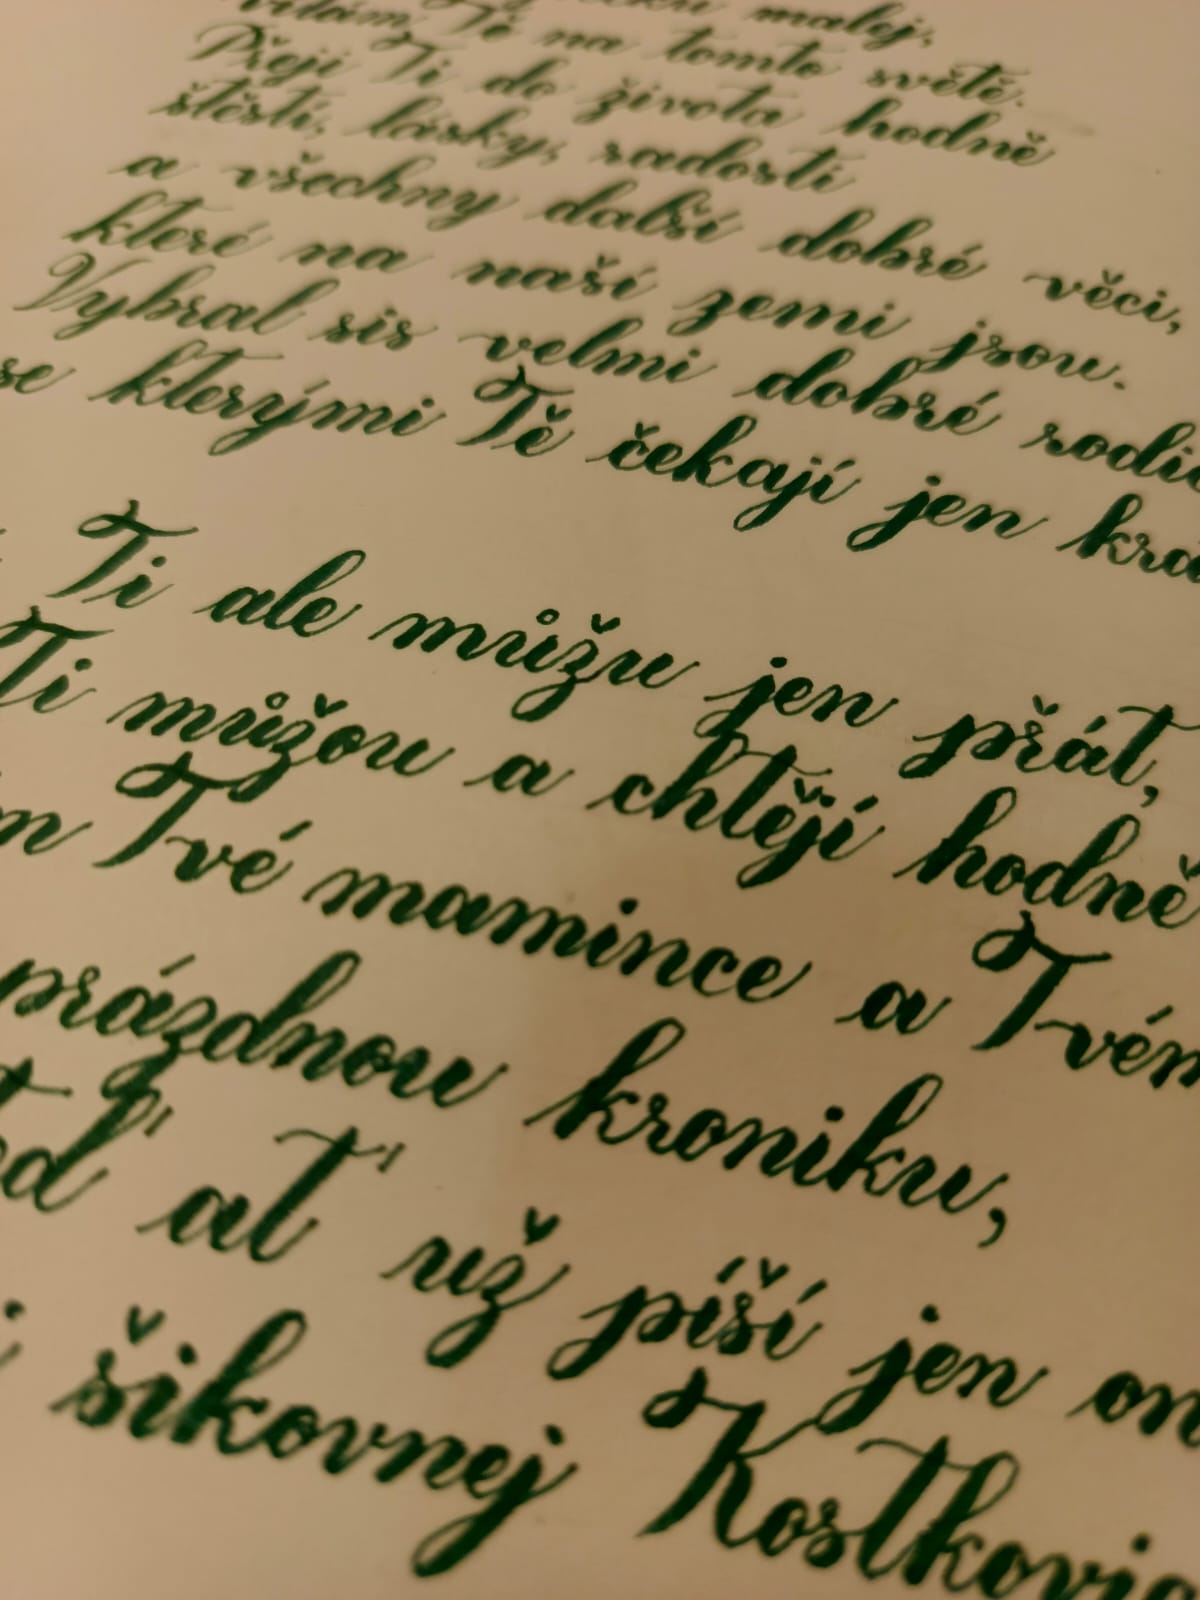 malej,
Tě na tomto světě.
Přeji Ti do života hodně
štěstí, lásky, radosti
a všechny další dobré věci,
které na naší zemi jsou.
Vybral sis velmi dobré
se kterými Tě čekají jen
Ti ale můžu jen přát,
Ti můžou a chtějí hodně
Tvé mamince a
prázdnou kroniku,
ať už píší jen
šikovnej